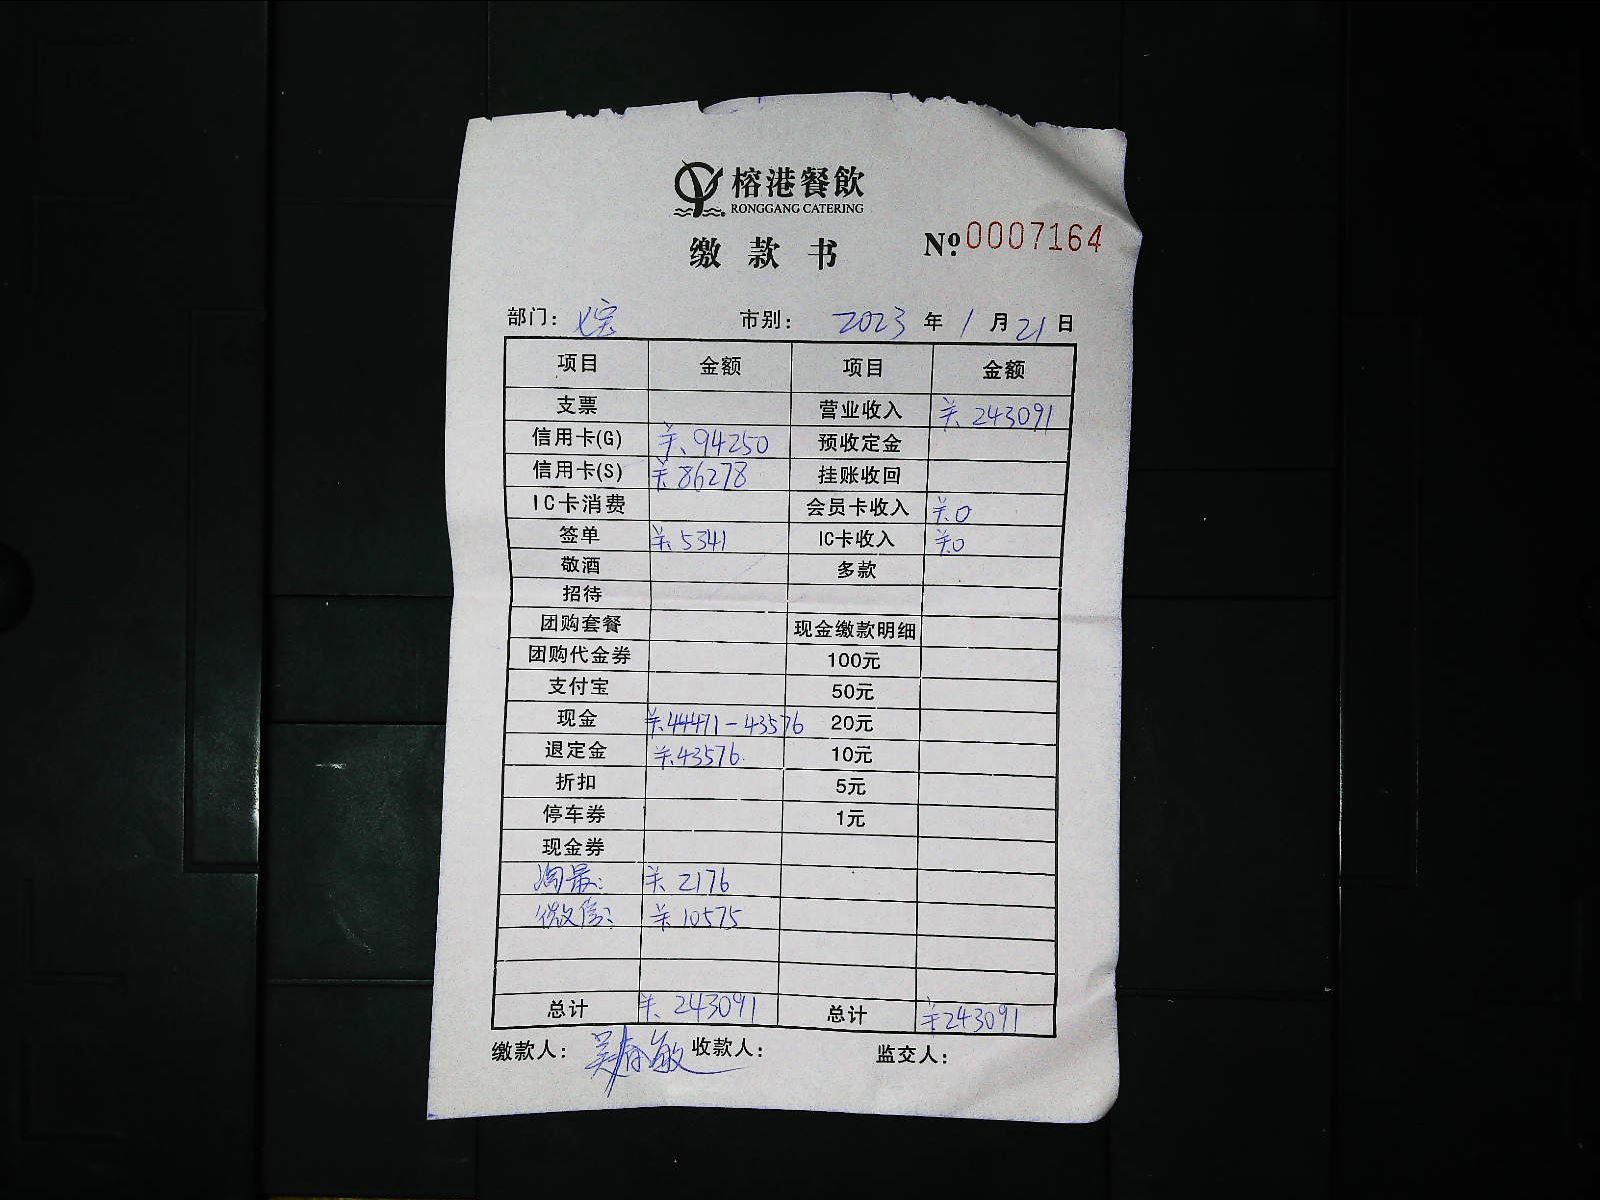 榕港餐飲
RONGGANG CATERING
缴款书 №.0007164
部门： 市别： 2023 年 1 月 21 日
项目 金额 项目 金额
支票 营业收入 ¥.243091
信用卡(G) ¥.94250 预收定金
信用卡(S) ¥.86278 挂账收回
IC卡消费 会员卡收入 ¥.0
签单 ¥.5341 IC卡收入 ¥.0
敬酒 多款
招待
团购套餐 现金缴款明细
团购代金券 100元
支付宝 50元
现金 ¥.44471-43576 20元
退定金 ¥.43576. 10元
折扣 5元
停车券 1元
现金券
¥.2176
微信： ¥.10575
总计 ¥.243091 总计 ¥243091
缴款人： 收款人： 监交人：